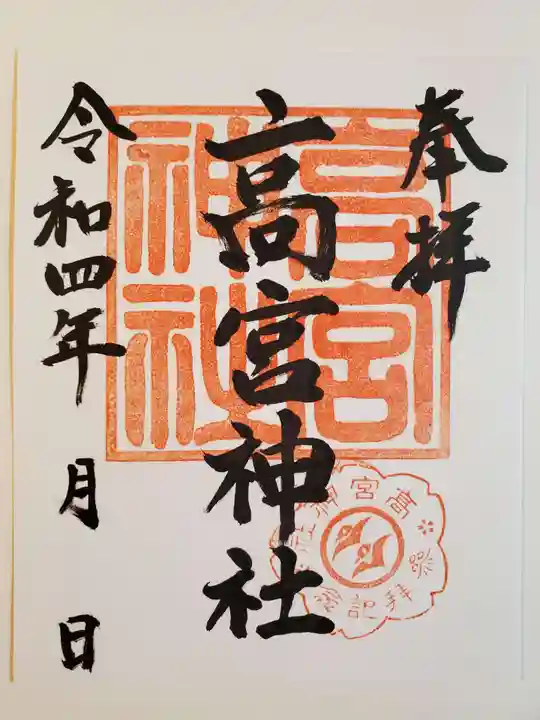 奉拝
高宮神社
令和四年　月　日
高宮神社
高宮神社参拝記念